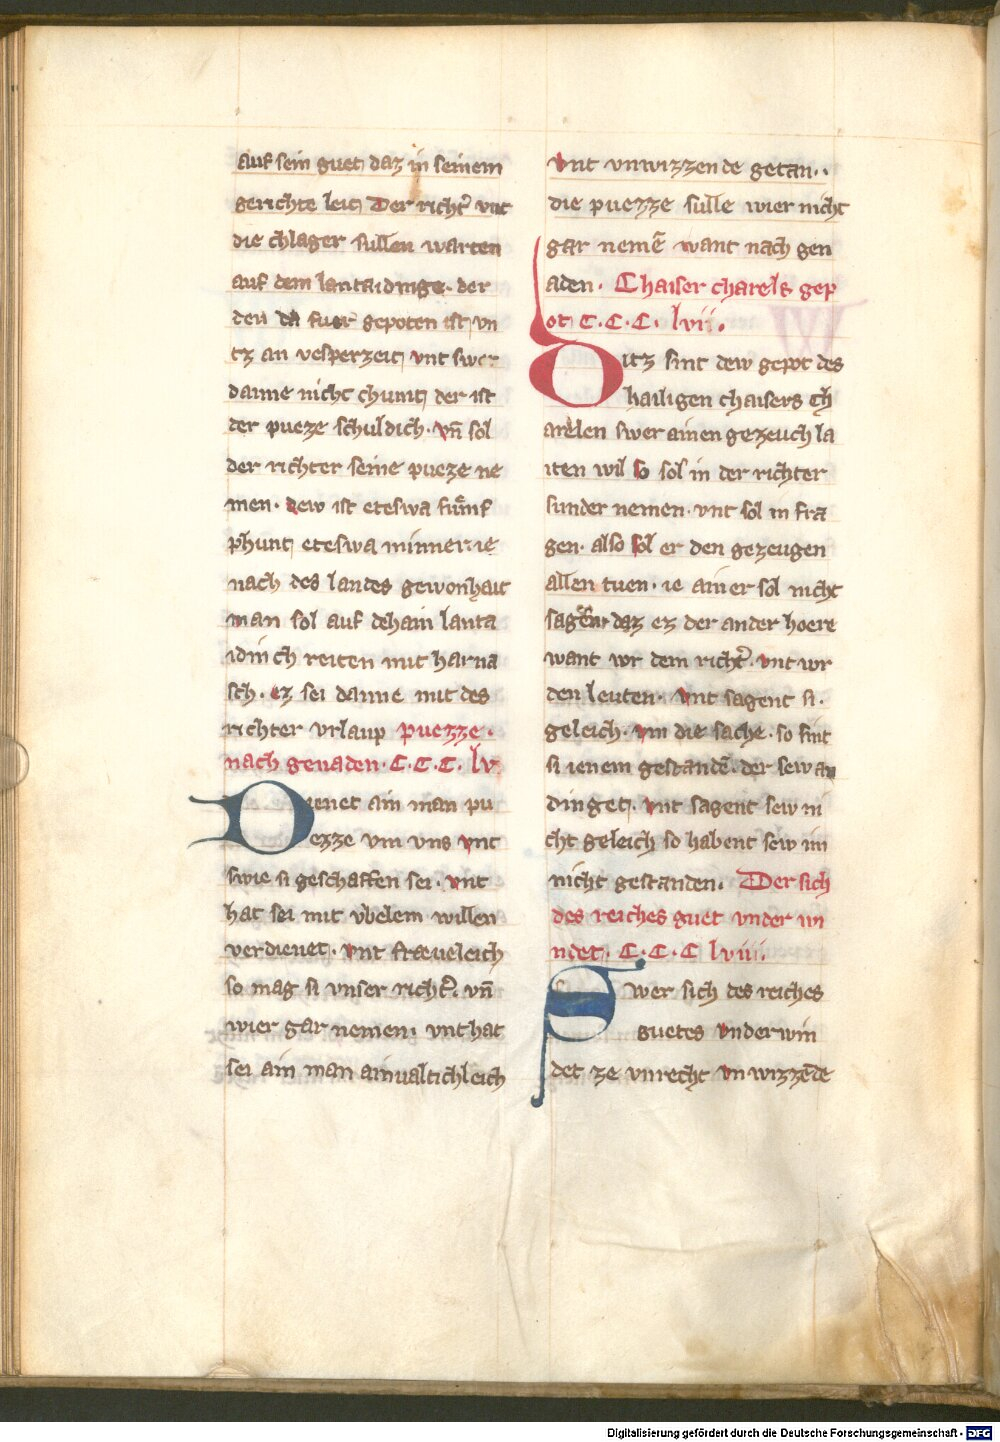 auf sein guet daz in seinem
gerichte leit Der richt̉ vnt
die chlager sullen warten
auf dem lantaidinge. der
deu da fuer gepoten ist vn
tz an vesperzeit vnt swer
danne nicht chumt der ist
der pueze schuldich. vn̄ sol
der richter seine pueze ne
men. dew ist eteswa fumf
phunt eteswa minner. ie
nach des landes gewonhait
man sol auf dehain lanta
idinch reiten mit harna
sch. ez sei danne mit des
richter vrlaup puezze.
nach genaden. C. C. C. lv.
Dienet ain man pu
ezze vm vns vnt
swie si geschaffen sei. vnt
hat sei mit vbelem willen
verdienet. vnt fræueleich
so mag si vnser richt̉. vn̄
wier gar nemen. vnt hat
sei ain man ainualtichleich
vnt vnwizzende getan..
die puezze sulle wier nicht
gar nemē want nach gen
aden. Chaiser charels gep
ot C. C. C. lvii.
Ditz sint dew gepot des
hailigen chaisers ch
arelen swer ainen gezeuch la
iten wil so sol in der richter
sunder nemen. vnt sol in fra
gen. also sol er den gezeugen
allen tuen. ie ainer sol nicht
sagen daz ez der ander hoere
want vor dem richt̉. vnt vor
den leuten. vnt sagent si.
geleich. vm die sache. so sint
si ienem gestandē. der sew an
dinget. vnt sagent sew ni
cht geleich so habent sew im
nicht gestanden. Der sich
des reiches guet vnder wi
ndet. C. C. C lviii.
Swer sich des reiches
guetes vnderwin
det ze vnrecht vnwizzēde
Digitalisierung gefördert durch die Deutsche Forschungsgemeinschaft - DFG